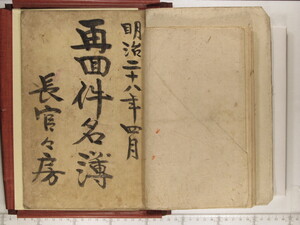 明治二十八年四月
再回件名簿
長官々房